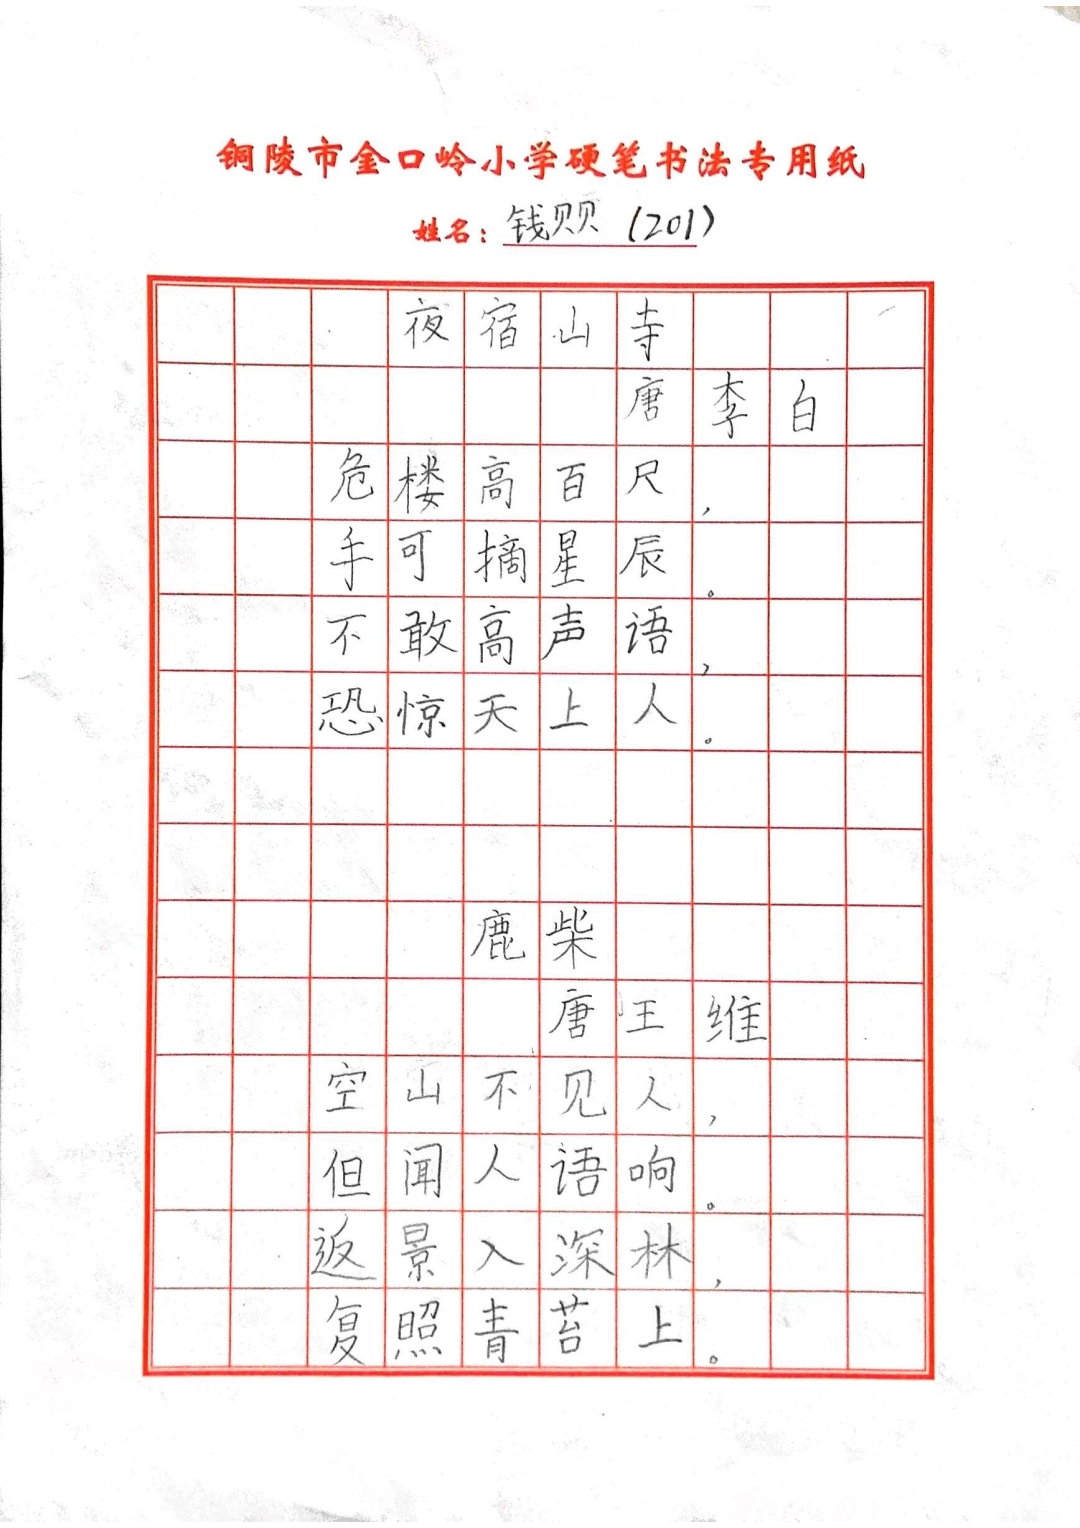 铜陵市金口岭小学硬笔书法专用纸
姓名：钱贝贝（201）
夜宿山寺
唐李白
危楼高百尺，
手可摘星辰。
不敢高声语，
恐惊天上人。
鹿柴
唐王维
空山不见人，
但闻人语响。
返景入深林，
复照青苔上。